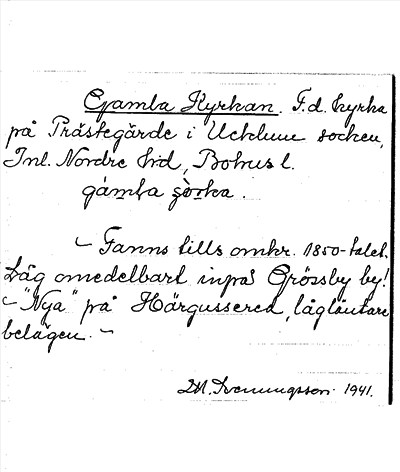 Gamla Kyrkan. F.d. kyrka
på Prästegärde i Ucklum socken,
Inl. Nordre hd, Bohus l.
gámla ṣò̱rka.
– Fanns tills omkr. 1850-talet.
Låg omedelbart inpå Grössby by!
– "Nya" på Härgussered, lågläntare
belägen. –
M. Svenungsson 1941.